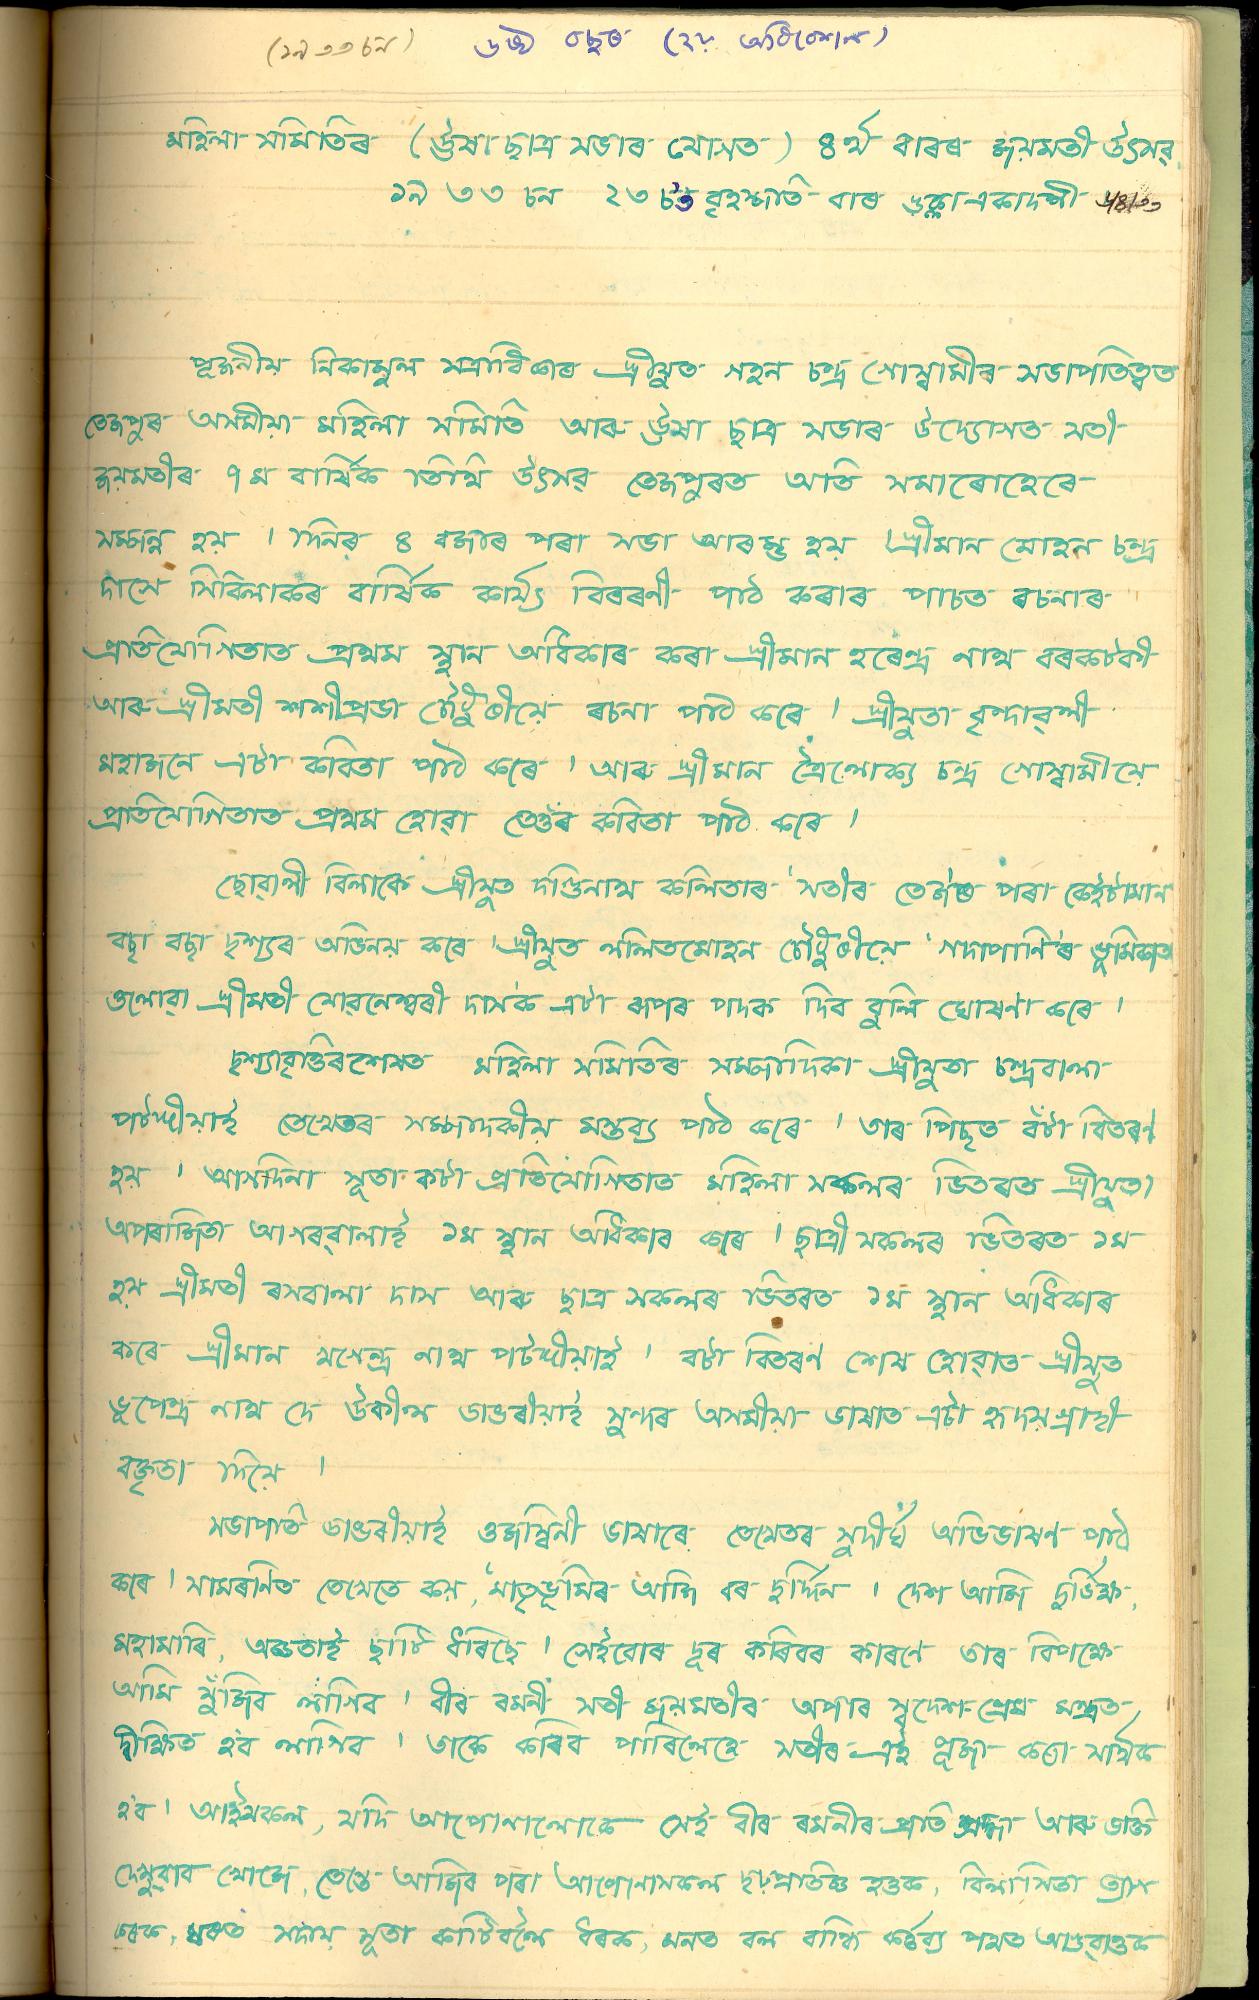 (১৯৩৩ চন) ৬ষ্ঠ বছৰ (২য় অধিবেশন)
মহিলা সমিতিৰ (ঊষা ছাত্ৰ সভাৰ যোগত) ৪ৰ্থ বাৰৰ জয়মতী উৎসৱ
১৯৩৩ চন ২৩ চ'ত বৃহস্পতি বাৰ শুক্লা একাদশী
পূজনীয় নিকামুল সত্ৰাধিকাৰ শ্ৰীযুত গহন চন্দ্ৰ গোস্বামীৰ সভাপতিত্বত
তেজপুৰ অসমীয়া মহিলা সমিতি আৰু ঊষা ছাত্ৰ সভাৰ উদ্যোগত সতী
জয়মতীৰ ৭ম বাৰ্ষিক তিথি উৎসৱ তেজপুৰত অতি সমাৰোহেৰে
সম্পন্ন হয় । দিনৰ ৪ বজাৰ পৰা সভা আৰম্ভ হয় । শ্ৰীমান মোহন চন্দ্ৰ
দাসে সিবিলাকৰ বাৰ্ষিক কাৰ্য্য বিৱৰণী পাঠ কৰাৰ পাচত ৰচনাৰ
প্ৰতিযোগিতাত প্ৰথম স্থান অধিকাৰ কৰা শ্ৰীমান হৰেন্দ্ৰ নাথ বৰকটকী
আৰু শ্ৰীমতী শশীপ্ৰভা চৌধুৰীয়ে ৰচনা পাঠ কৰে । শ্ৰীযুতা বৃন্দাৱনী
মহাজনে এটা কবিতা পাঠ কৰে । আৰু শ্ৰীমান ত্ৰৈলোক্য চন্দ্ৰ গোস্বামীয়ে
প্ৰতিযোগিতাত প্ৰথম হোৱা তেওঁৰ কবিতা পাঠ কৰে ।
ছোৱালী বিলাকে শ্ৰীযুত দণ্ডিনাথ কলিতাৰ 'সতীৰ তেজ'ৰ পৰা কেইটামান
বছা বছা দৃশ্যৰ অভিনয় কৰে । শ্ৰীযুত ললিতমোহন চৌধুৰীয়ে 'গদাপাণি'ৰ ভূমিকাত
ওলোৱা শ্ৰীমতী যোৱনেশ্বৰী দাসক এটা ৰূপৰ পদক দিব বুলি ঘোষণা কৰে ।
দৃশ্যাবৃত্তিৰ শেষত মহিলা সমিতিৰ সম্পাদিকা শ্ৰীযুতা চন্দ্ৰবালা
পটঙ্গীয়াই তেখেতৰ সম্পাদকীয় মন্তব্য পাঠ কৰে । তাৰ পিছত বঁটা বিতৰণ
হয় । আগদিনা সূতা কটা প্ৰতিযোগিতাত মহিলা সকলৰ ভিতৰত শ্ৰীযুতা
অপৰাজিতা আগৰৱালাই ১ম স্থান অধিকাৰ কৰে । ছাত্ৰী সকলৰ ভিতৰত ১ম
হয় শ্ৰীমতী ৰসবালা দাস আৰু ছাত্ৰ সকলৰ ভিতৰত ১ম স্থান অধিকাৰ
কৰে শ্ৰীমান খগেন্দ্ৰ নাথ পটঙ্গীয়াই । বটা বিতৰণ শেষ হোৱাত শ্ৰীযুত
ভূপেন্দ্ৰ নাথ দে উকীল ডাঙৰীয়াই সুন্দৰ অসমীয়া ভাষাত এটা হৃদয়গ্ৰাহী
বক্তৃতা দিয়ে ।
সভাপতি ডাঙৰীয়াই ওজস্বিনী ভাষাৰে তেখেতৰ সুদীৰ্ঘ অভিভাষণ পাঠ
কৰে । সামৰণিত তেখেতে কয়, 'মাতৃভূমিৰ আজি বৰ দুৰ্দ্দিন । দেশ আজি দুৰ্ভিক্ষ,
মহামাৰি, অজ্ঞতাই ছাটি ধৰিছে । সেইবোৰ দূৰ কৰিবৰ কাৰণে তাৰ বিপক্ষে
আমি যুঁজিব লাগিব । বীৰ ৰমনী সতী জয়মতীৰ অপাৰ স্বদেশ-প্ৰেম মন্ত্ৰত
দীক্ষিত হ'ব লাগিব । তাকে কৰিব পাৰিলেহে সতীৰ এই পূজা কৰা সাৰ্থক
হ'ব । আইসকল, যদি আপোনালোকে সেই বীৰ ৰমনীৰ প্ৰতি শ্ৰদ্ধা আৰু ভক্তি
দেখুৱাব খোজে, তেন্তে আজিৰ পৰা আপোনাসকল দৃঢ়প্ৰতিজ্ঞ হওক, বিলাসিতা ত্যাগ
কৰক, ঘৰত সদায় সূতা কাটিবলৈ ধৰক, মনত বল বান্ধি কৰ্ত্তব্য পথত আগুৱাওক